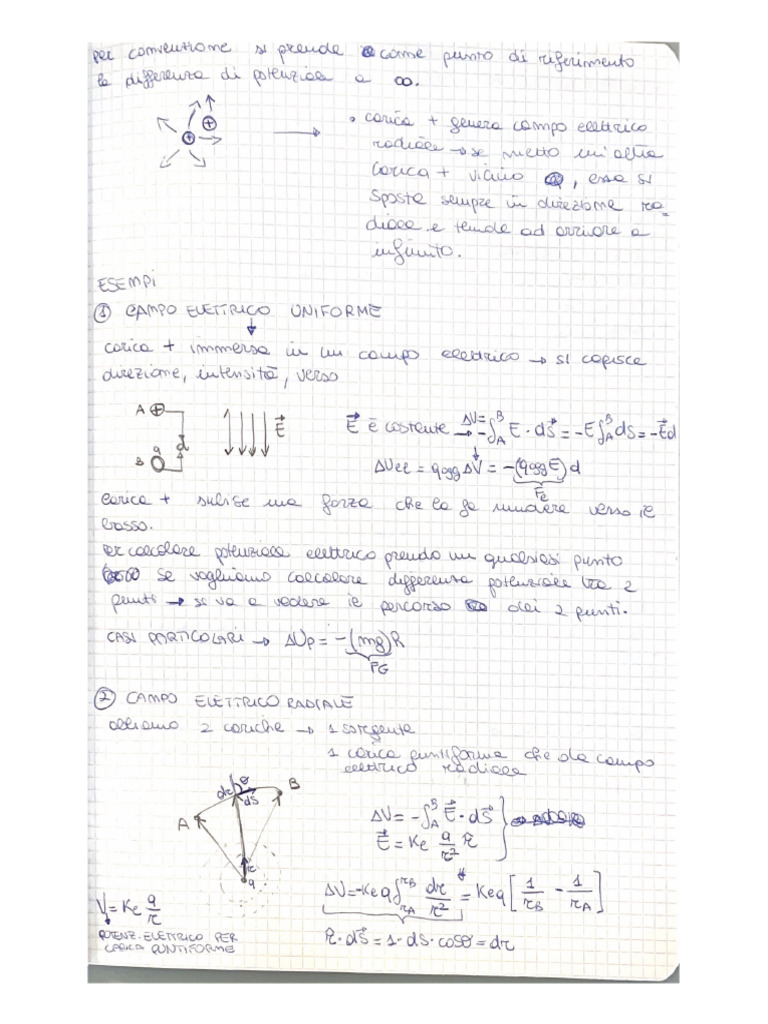 per convenzione si prende come punto di riferimento
la differenza di potenziale a ∞.
• carica + genera campo elettrico
radiale → se metto un'altra
carica + vicino, essa si
sposta sempre in direzione ra-
diale e tende ad arrivare a
infinito.
ESEMPI
① CAMPO ELETTRICO UNIFORME
carica + immersa in un campo elettrico → si capisce
direzione, intensità, verso
A ⊕
q
d
B
E⃗
E⃗ è costante → ΔV = -∫_A^B E · dS⃗ = -E∫_A^B dS = -E⃗d
ΔUel = qogg ΔV = -(qogg E)d
Fe
carica + subisce una forza che la fa andare verso il
basso.
Per calcolare potenziale elettrico prendo un qualsiasi punto
Se vogliamo calcolare differenza potenziale tra 2
punti → si va a vedere il percorso dei 2 punti.
CASI PARTICOLARI → ΔUp = -(mg)h
FG
② CAMPO ELETTRICO RADIALE
abbiamo 2 cariche → 1 sorgente
1 carica puntiforme che da campo
elettrico radiale
dr θ
dS⃗
B
A
r̂
q
ΔV = -∫_A^B E⃗ · dS⃗
E⃗ = Ke q/r² r̂
ΔV = -Keq∫_rA^rB dr/r² = Keq[1/rB - 1/rA]
r̂ · dS⃗ = 1 · dS · cosθ = dr
V = Ke q/r
POTENZ. ELETTRICO PER
CARICA PUNTIFORME